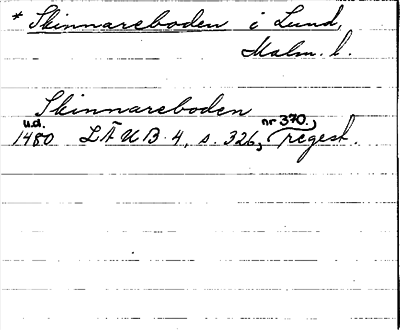 * Skinnareboden i Lund,
Malm. l.
Skinnareboden
u.d. nr 370.,
1480 LÄUB 4, s. 326, regest.